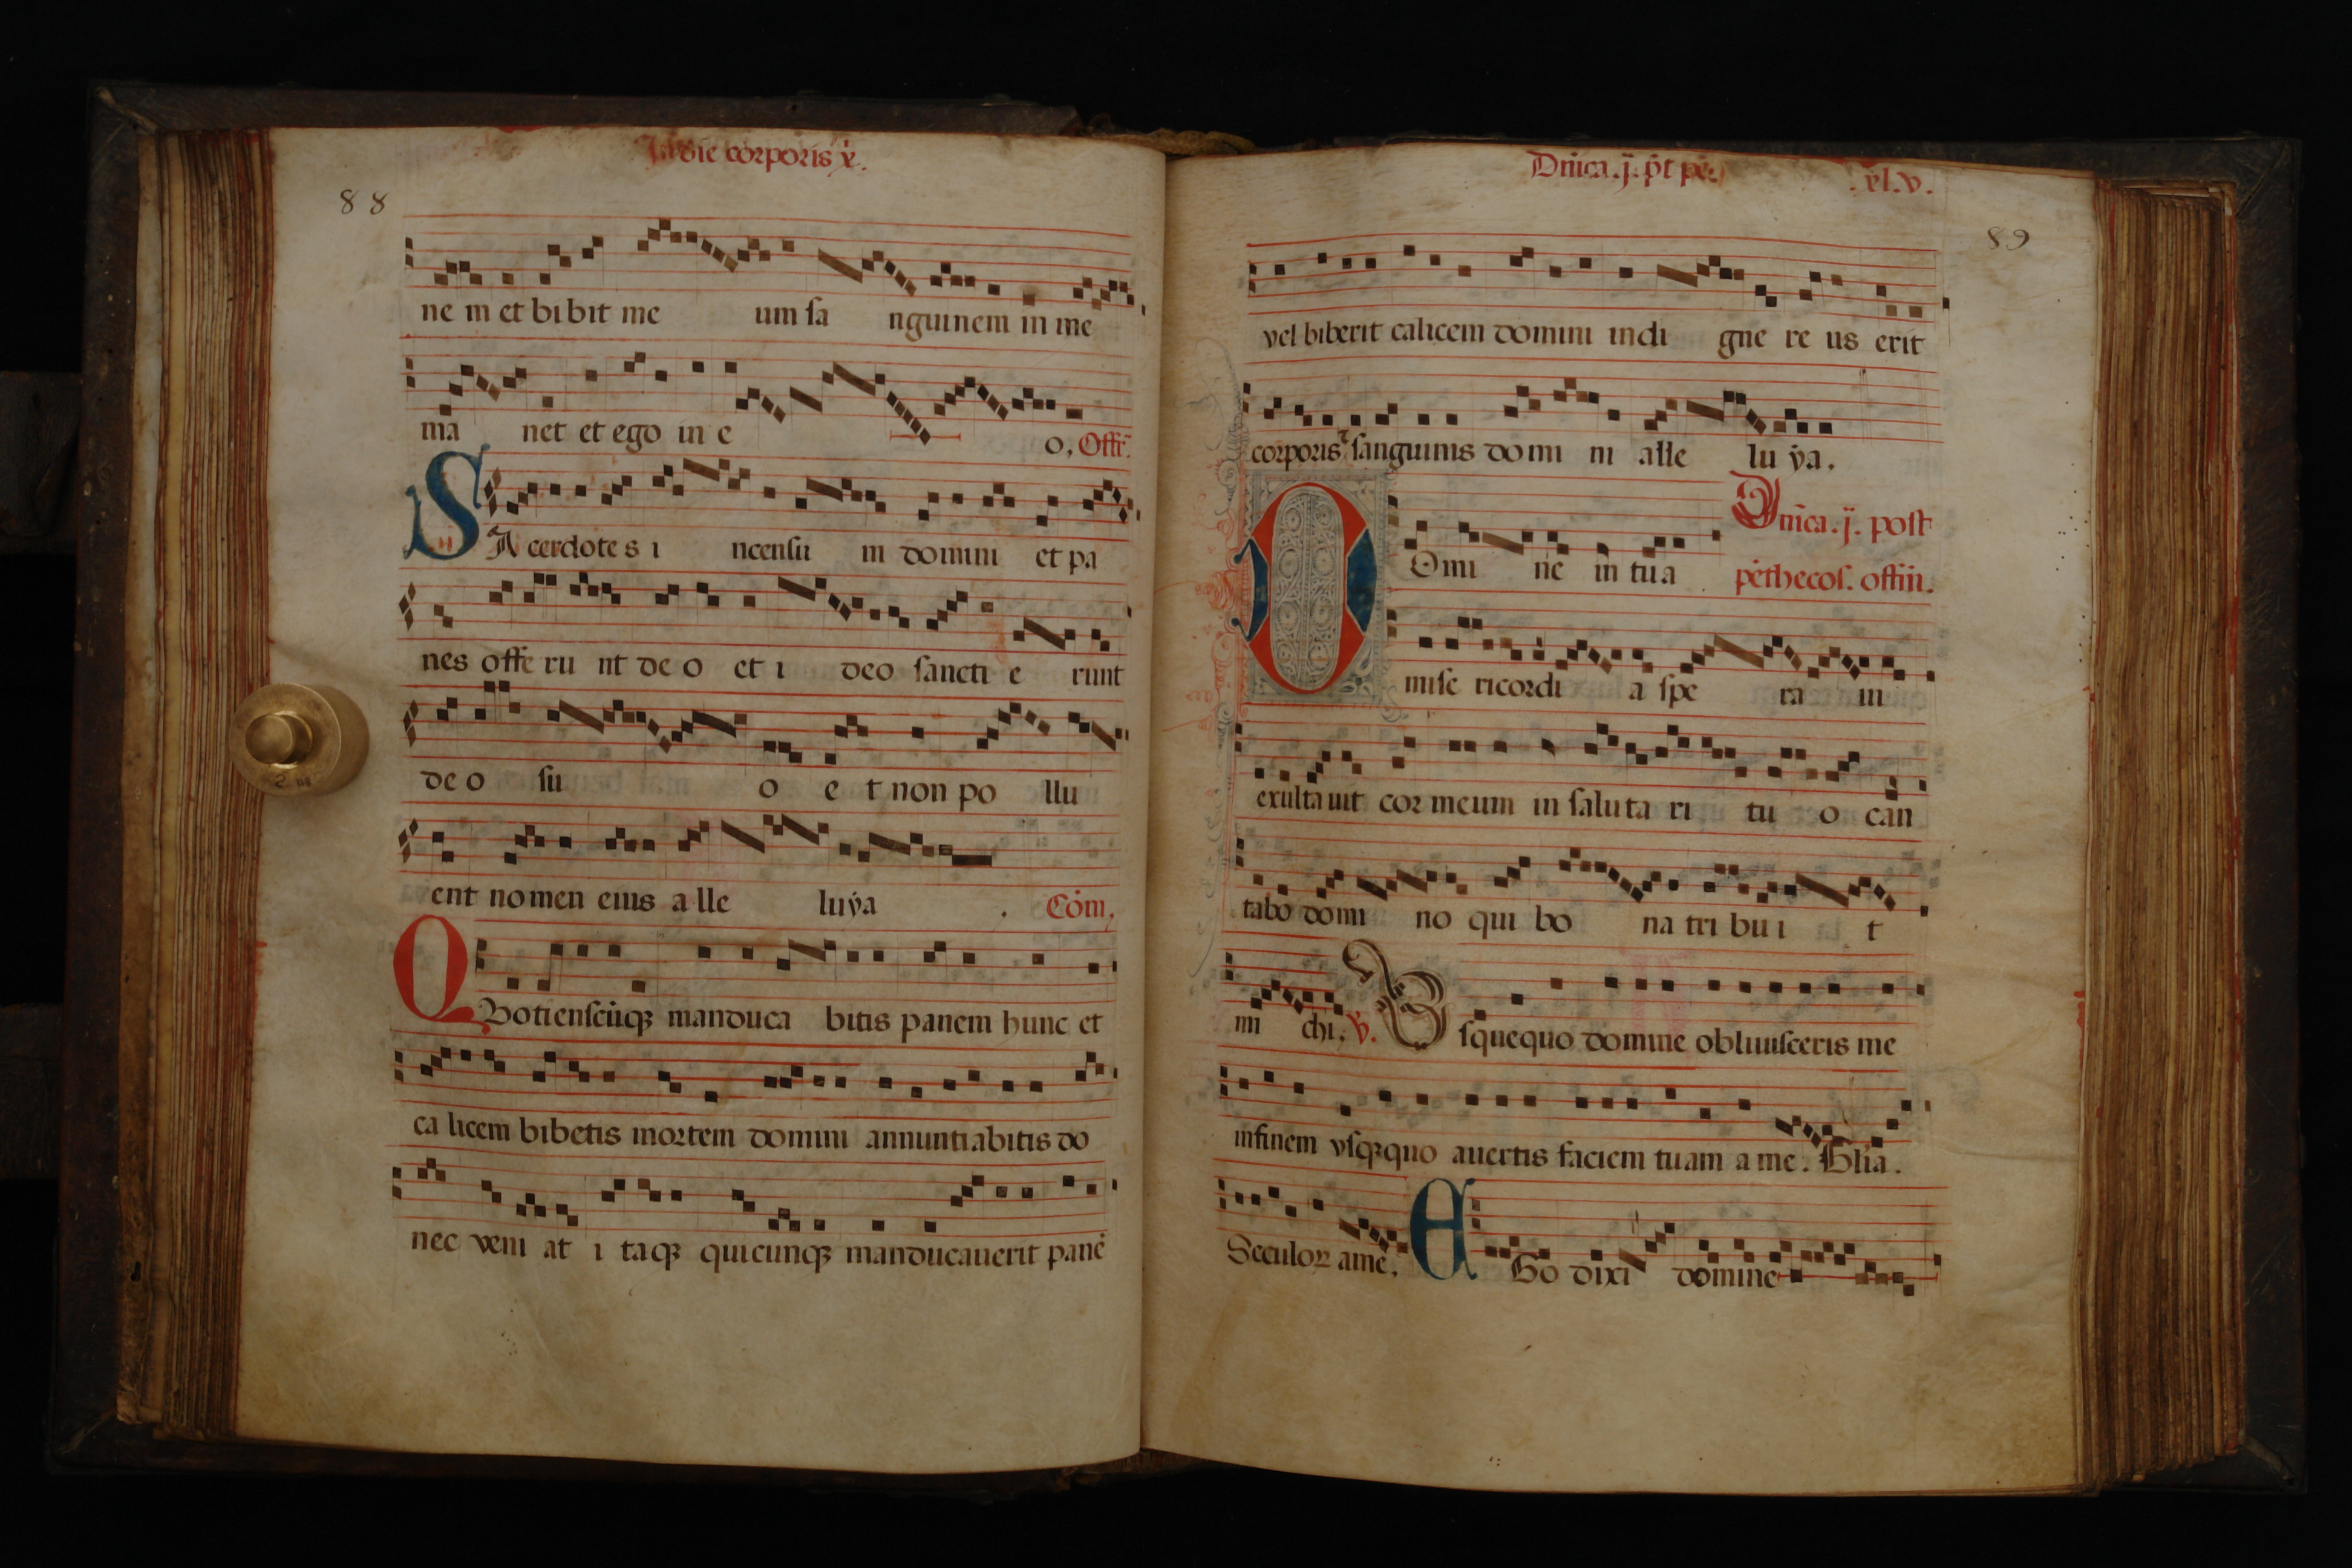 In die corporis xp̄i.
88
ne m et bi bit me um sa nguinem in me
ma net et ego in e o. Offr̄.
SAcerdote s i ncensu m domini et pa
nes offe ru nt de o et i deo sancti e runt
de o su o e t non po llu
ent nomen eius a lle luya . Com̄.
QUotienscūq̄ manduca bitis panem hunc et
ca licem bibetis mortem domini annuntiabitis do
nec veni at i taq̄ quicunq̄ manducauerit panē
Dn̄ica .j. p̄t pē.
.xl.v.
89
vel biberit calicem domini indi gne re us erit
corporis ⁊ sanguinis domi ni alle lu ya.
Dn̄ica .j. post
DOmi ne in tua pēthecos. offiū.
mise ricordi a spe ra ui
exulta uit cor meum in saluta ri tu o can
tabo domi no qui bo na tri bu i t
mi chi. v̄. Usquequo domine obliuisceris me
infinem vsq̄quo auertis faciem tuam a me. Gl̄ia.
Seculoꝝ amē. EGo dixi domine